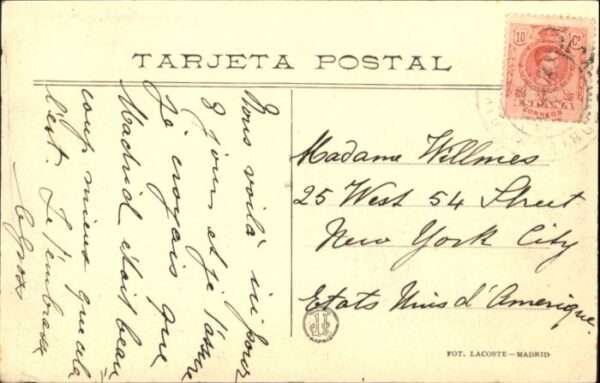 TARJETA POSTAL
10 Cs
ESPAÑA
CORREOS
Nous voilà ici pour
8 jours et je t'assure
Je croyais que
Madrid était beau
coup mieux que cela
l'est. Je t'embrasse
Madame Willmes
25 West 54 Street
New York City
Etats Unis d'Amerique.
FOT. LACOSTE—MADRID